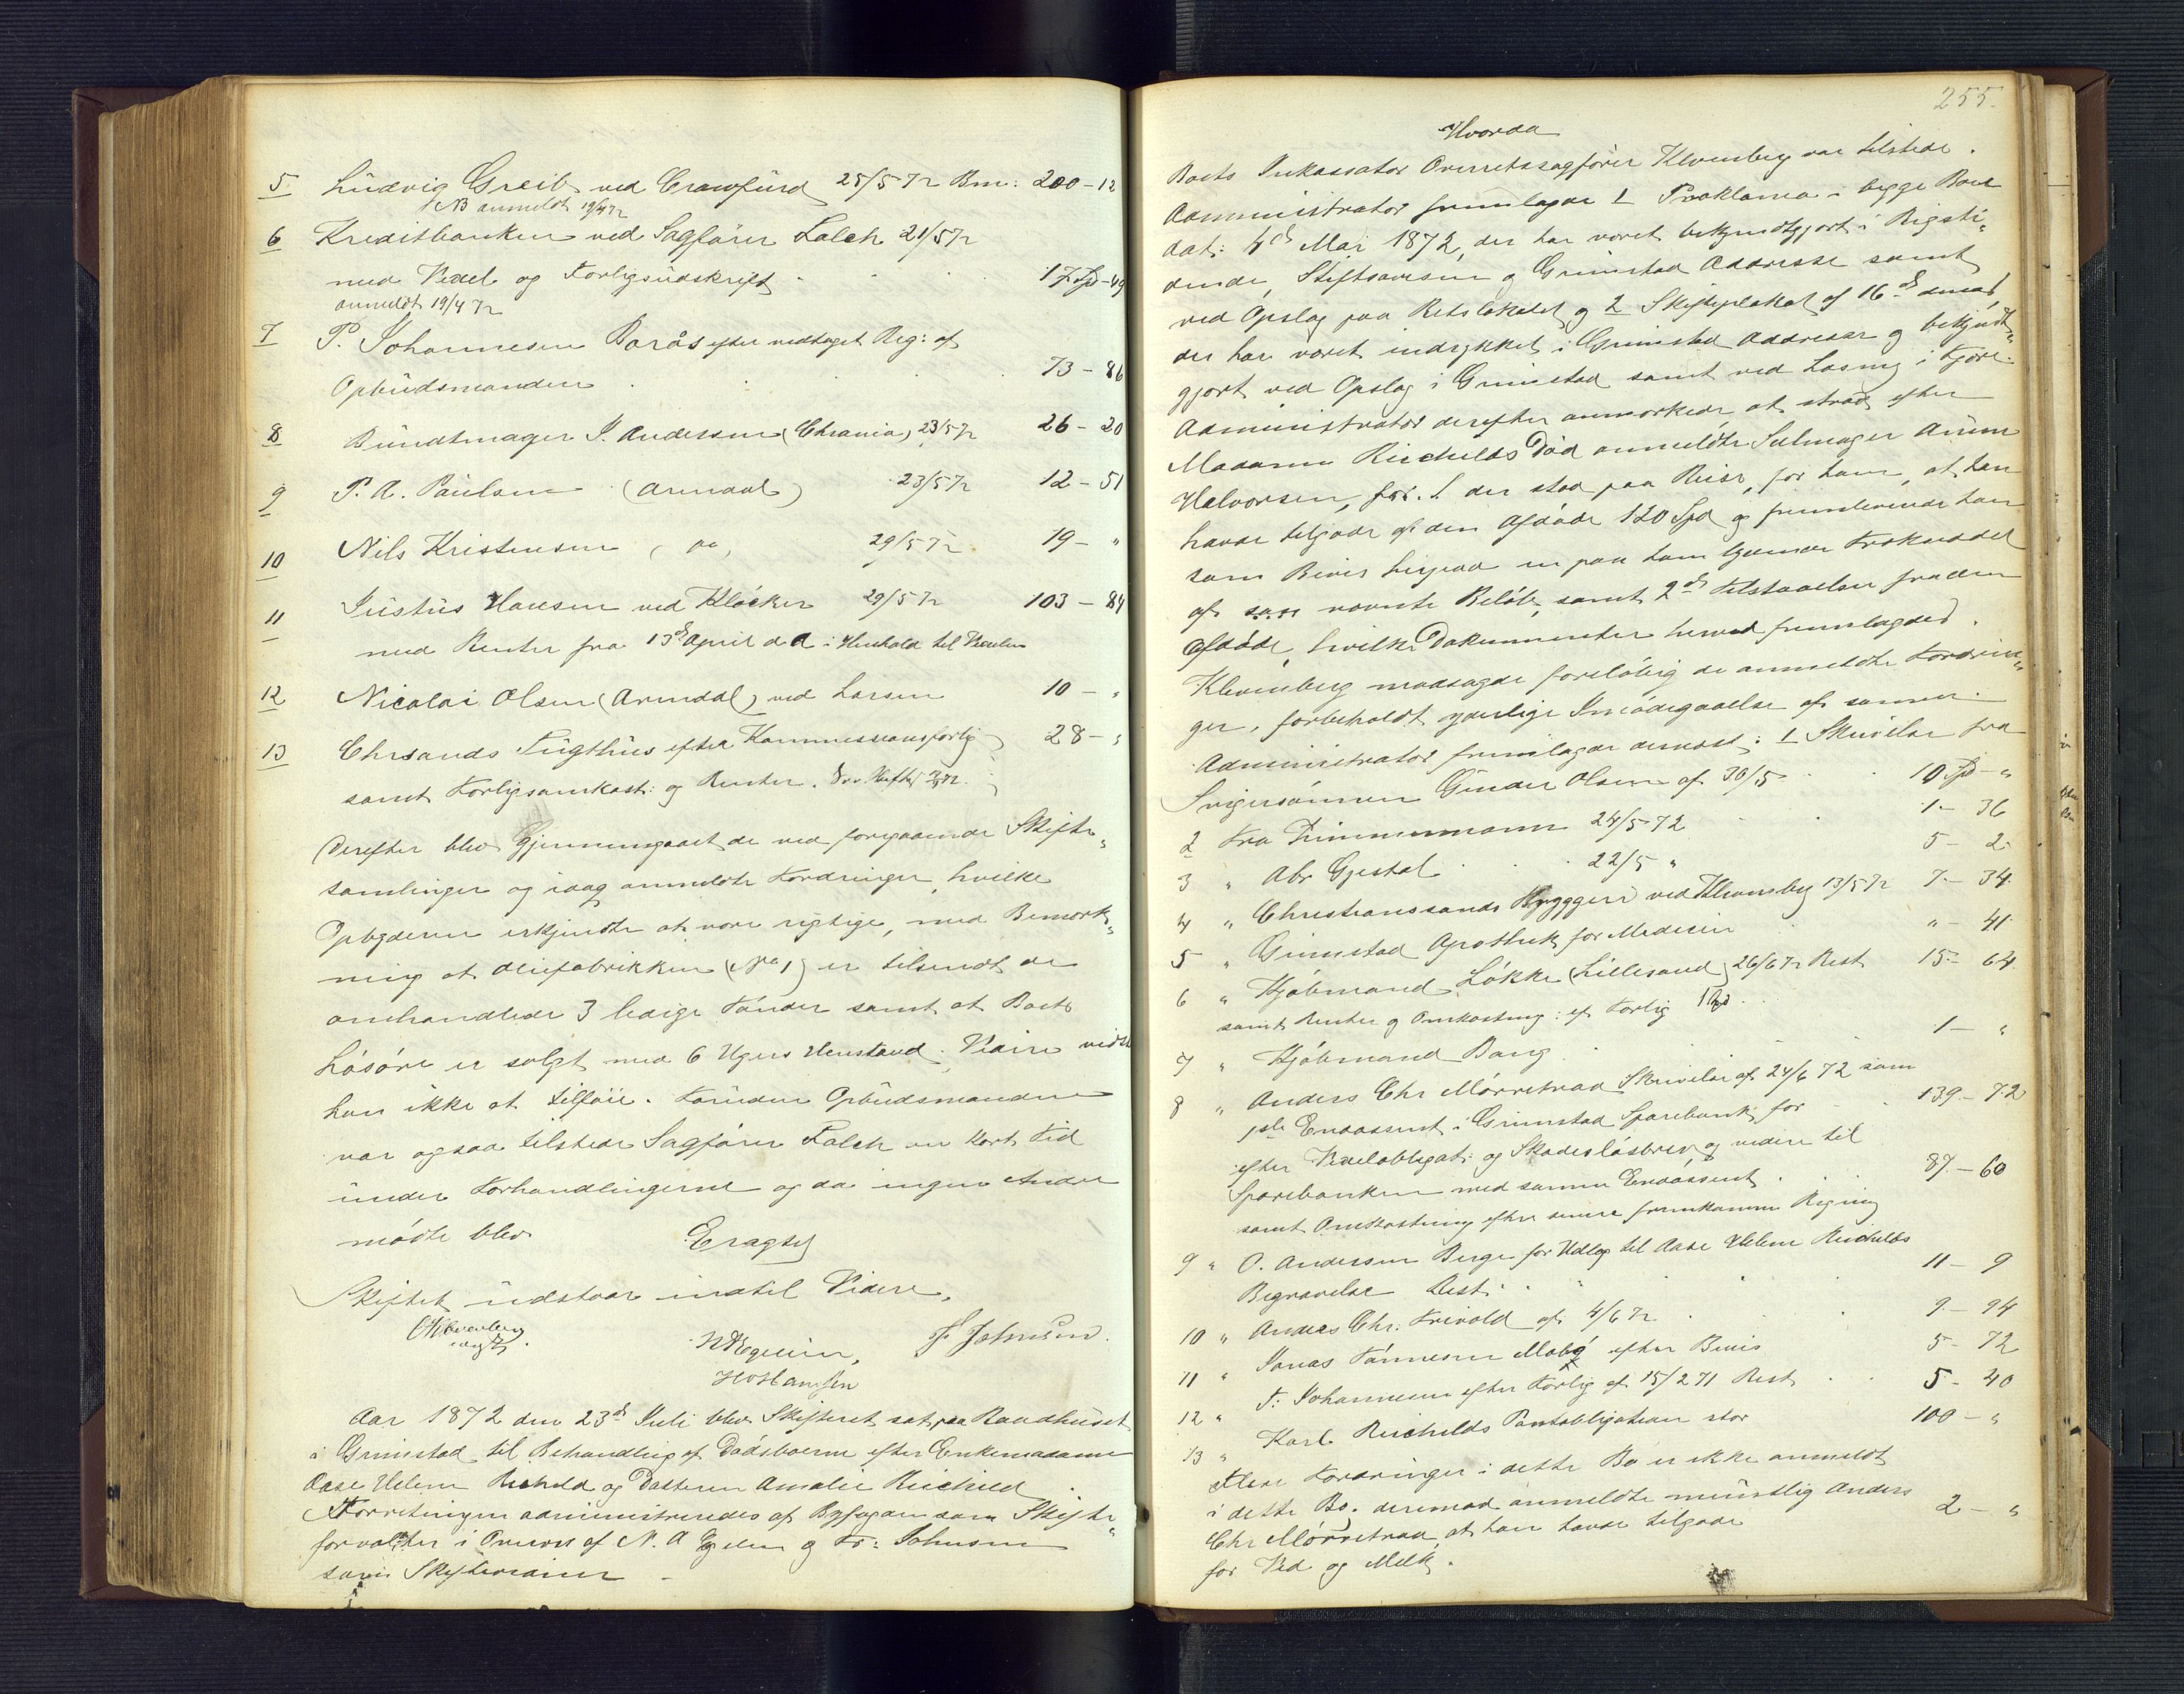 5 Ludvig Greib ved Crawfurd 25/5 72 Bm: 200-12
NB anmeldt 19/4 72
6 Kreditbanken ved Sagfører Falch 21/5 72
med Vexel og Forligsudskrift 17 Spd-49
anmeldt 19/4 72
7 P. Johannesen Borås efter vedtaget Reg: af
Opbudsmanden 73-86
8 Bundtmager J. Andersen (Chrania) 23/5 72 26-20
9 P. A. Paulsen (Arendal) 23/5 72 12-51
10 Nils Kristensen ( do ) 29/5 72 19-"
11 Justus Hansen ved Kløcker 29/5 72 103-84
med Renter fra 13de April d A i Henhold til Vexelen
12 Nicolai Olsen (Arendal) ved Larsen 10-"
13 Chrsands Tugthus efter Kommissionsforlig 28-"
samt Forligsomkost: og Renter.
Derefter blev Gjennemgaaet de ved foregaaende Skifte„
samlinger og idag anmeldte Fordringer, hvilke
Opbyderen erkjendte at være rigtige, med Bemærk„
ning at Oliefabrikken (No 1) er tilsendt de
omhandlede 3 ledige Tønder samt at Boets
Løsøre er solgt med 6 Ugers Henstand. Videre vidste
han ikke at tilføie. Foruden Opbudsmanden
var ogsaa tilstede Sagfører Falch en kort Tid
under Forhandlingerne og da ingen Anden
mødte blev
Eragtet
Skiftet udstaar indtil Videre.
CKlevenberg
N A Egelien, F. Johnsen.
H Hansen
Aar 1872 den 23de Juli blev Skifteret sat paa Raadhuset
i Grimstad til Behandling af Dødsboerne efter Enkemadame
Aase Helene Reicheld og Datteren Amalie Reicheld
Forretningen administreredes af Byfogden som Skifte„
forvalter i Overvær af N. A Egelien og Fr: Johnsen
som Skiftevidner
255.
Hvorda
Boets Inkassator Overretssagfører Klevenberg var tilstede.
Administrator fremlagde 1 Proklama i begge Boer
dat: 4de Mai 1872, der har været bekjendtgjort i Rigsti„
dende, Stiftsavisen og Grimstad Addresse samt
ved Opslag paa Retslokalet og 2 Skifteplakat af 16de dennes,
der har været indrykket i Grimstad Addresse og bekjendt„
gjort ved Opslag i Grimstad samt ved Læsning i Fjære.
Administrator derefter anmærkede, at strax efter
Madame Reichelds Død anmeldte Salmager Anton
Halvorsen, før. der stod paa Reise, for ham, at han
havde tilgode af den Afdøde 120 Spd og fremleverede han
som Bevis herpaa en paa ham lydende
af nævnte Beløb, samt 2de Tilstaaelser fra den
Afdøde, hvilke Dokumenter herved fremlagdes.
Klevenberg modsagde foreløbig de anmeldte Fordrin„
ger, forbeholdt yderlige Imødegaaelse af samme.
Administrator fremlagde dernæst: 1 Skrivelse fra
Svigersønnen Gunder Olsen af 30/5 10 Spd-"
2 Fra Timmermann 24/5-72 1-36
3 " Abr Gjestal 22/5 " 5-2.
4 " Christianssands Bryggeri ved Klevenberg 13/5 72 7-34.
5 " Grimstad Apothek for Medicin "-41
6 " Kjøbmand Løkke (Lillesand) 26/6 72 Rest 15-64.
samt Renter og Omkostning: ef Forlig
7 " Kjøbmand Bang 1-"
8 " Anders Chr Mørretvad Skrivelse af 24/6 72 som
1ste Endossent i Grimstad Sparebank for 139-72
efter Vexelobligat: og Skadesløsbrev og videre til
Sparebanken med samme Endossent 87-60
samt Omkostning efter senere fremkommen Regning
9 " O. Andersen Berge for Udlæg til Aase Helene Reichelds
Begravelse Rest 11-9
10 " Anders Chr. Frivold af 4/6 72 9-94
11 " Jonas Tønnesen Moby efter Bevis 5-72
12 " T. Johannesen efter Forlig af 15/2 71 Rest 5-40
13 " Karl Reichelds Pantobligation stor 100-"
Flere Fordringer i dette Bo er ikke anmeldt
i dette Bo. derimod anmeldte mundtlig Anders
Chr Mørretvad, at han havde tilgode 2-"
for Ved og Melk.